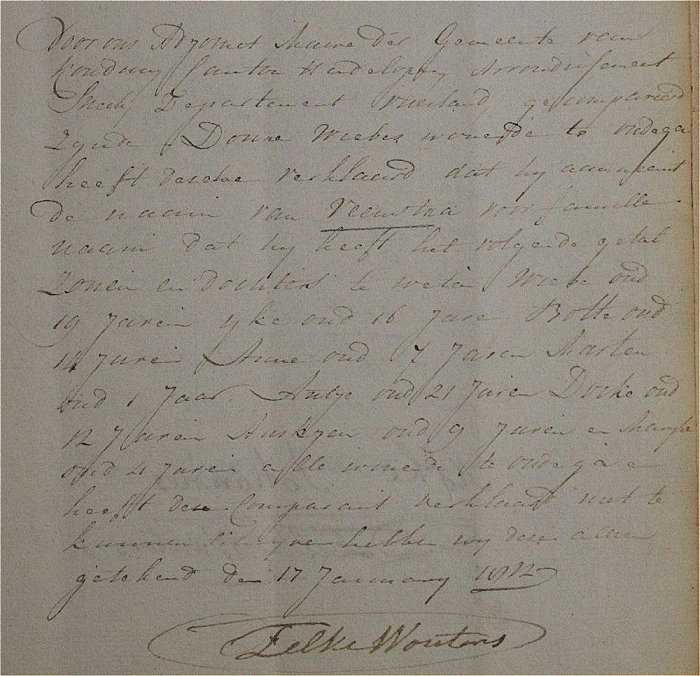 Voor ons Adjonct Maire der Gemeente van
Koudum Canton Hindelopen Arrondissement
Sneek Departement Vriesland, gecompareerd
Zijnde Douwe Wiebes wonende te oudega
heeft dezelve verklaard dat hy aanneemt
de naam van Veenstra voor familie
naam dat hy heeft het volgende getal
Zonen en dochters te weten Wiebe oud
19 Jaren yke oud 16 Jaren Botte oud
14 Jaren Anne oud 7 Jaren Marten
oud 1 Jaar. Antje oud 21 Jaren Doeke oud
12 Jaren oud 9 Jaren en
oud 4 Jaren alle wonende te oudega en
heeft deze Comparant verklaard niet te
kunnen hebben wy deze alleen
getekend den 17 January 1812
Eelke Wouters